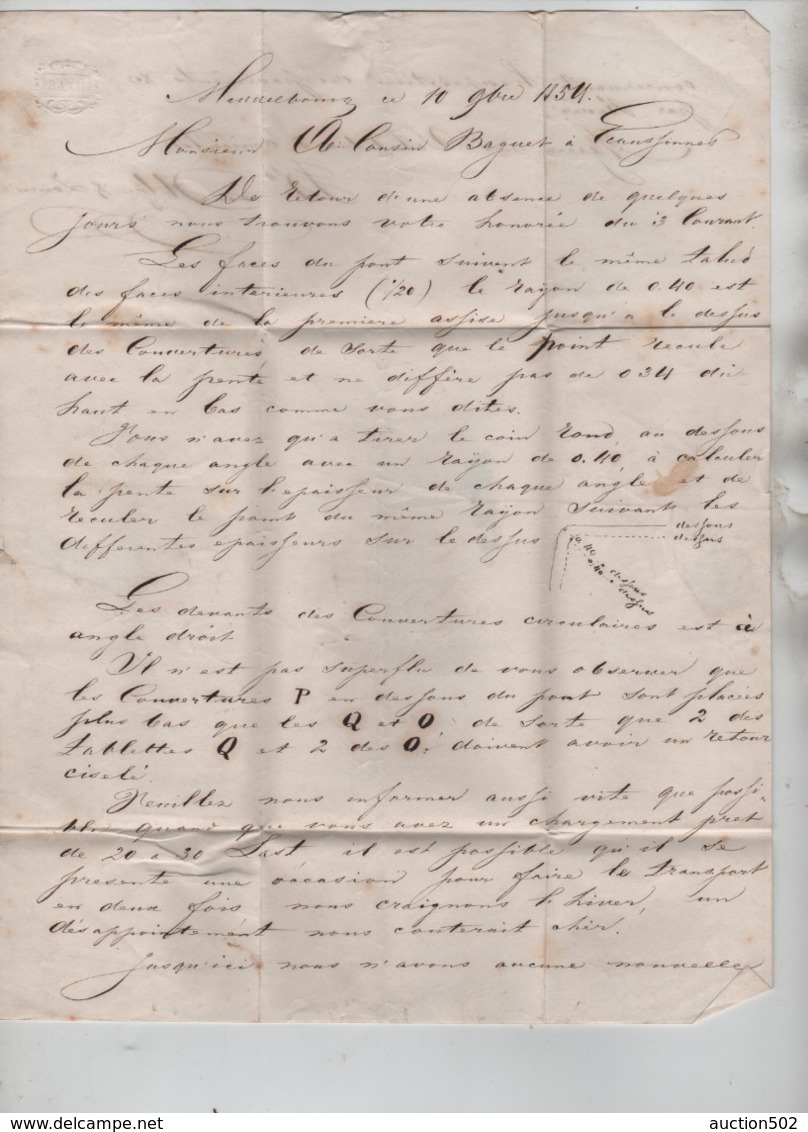 ce 10 9bre 1854.
Monsieur A: Cousin Baguet à Ecaussinnes
De retour d'une absence de quelques
jours nous trouvons votre honorée du 3 Courant.
Les faces du pont suivent le même talud
des faces interieures (1/20) le rayon de 0.40 est
le même de la premiere assise jusqu'a le dessus
des Couvertures de sorte que le point recule
avec la pente et ne diffère pas de 034 du
haut en bas comme vous dites.
Vous n'avez qu'a tirer le coin rond, au dessous
de chaque angle avec un rayon de 0.40 à calculer
la pente sur l'epaisseur de chaque angle et de
reculer le point du même rayon suivant les
differentes epaisseurs sur le dessus
dessous
dessus
0.40 à dessous
0.40 à dessus
Les devants des Couvertures circulaires est à
angle droit
Il n'est pas superflu de vous observer que
les Couvertures P en dessous du pont sont placées
plus bas que les Q et O de sorte que 2 des
tablettes Q et 2 des O: doivent avoir un retour
ciselé.
Veuillez nous informer aussi vite que possi-
ble quand que vous avez un chargement pret
de 20 a 30 Last il est possible qu'il se
presente une occasion pour faire le transport
en deux fois nous craignons l'hiver, un
désappointemént nous couterait cher.
Jusqu'ici nous n'avons aucune nouvelle
auction502